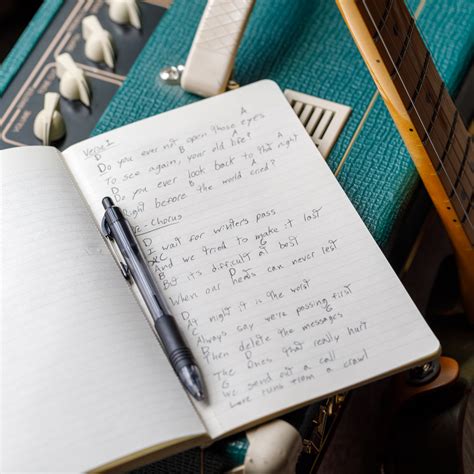 Verse 1
D A
Do you ever not open those eyes
B A
To see again, your old bike?
D A
Do you ever look back to that night
B
Right before the world ended?
Pre-Chorus
D
I wait for winters pass
And we tried to make it last
B G
But its difficult at best
D
When our heads can never rest
D
At night it is the worst
Always say we're passing first
D
Then delete the messages
The Ones that really hurt
G
We send out a call
Love runs from a crawl
VOLUME